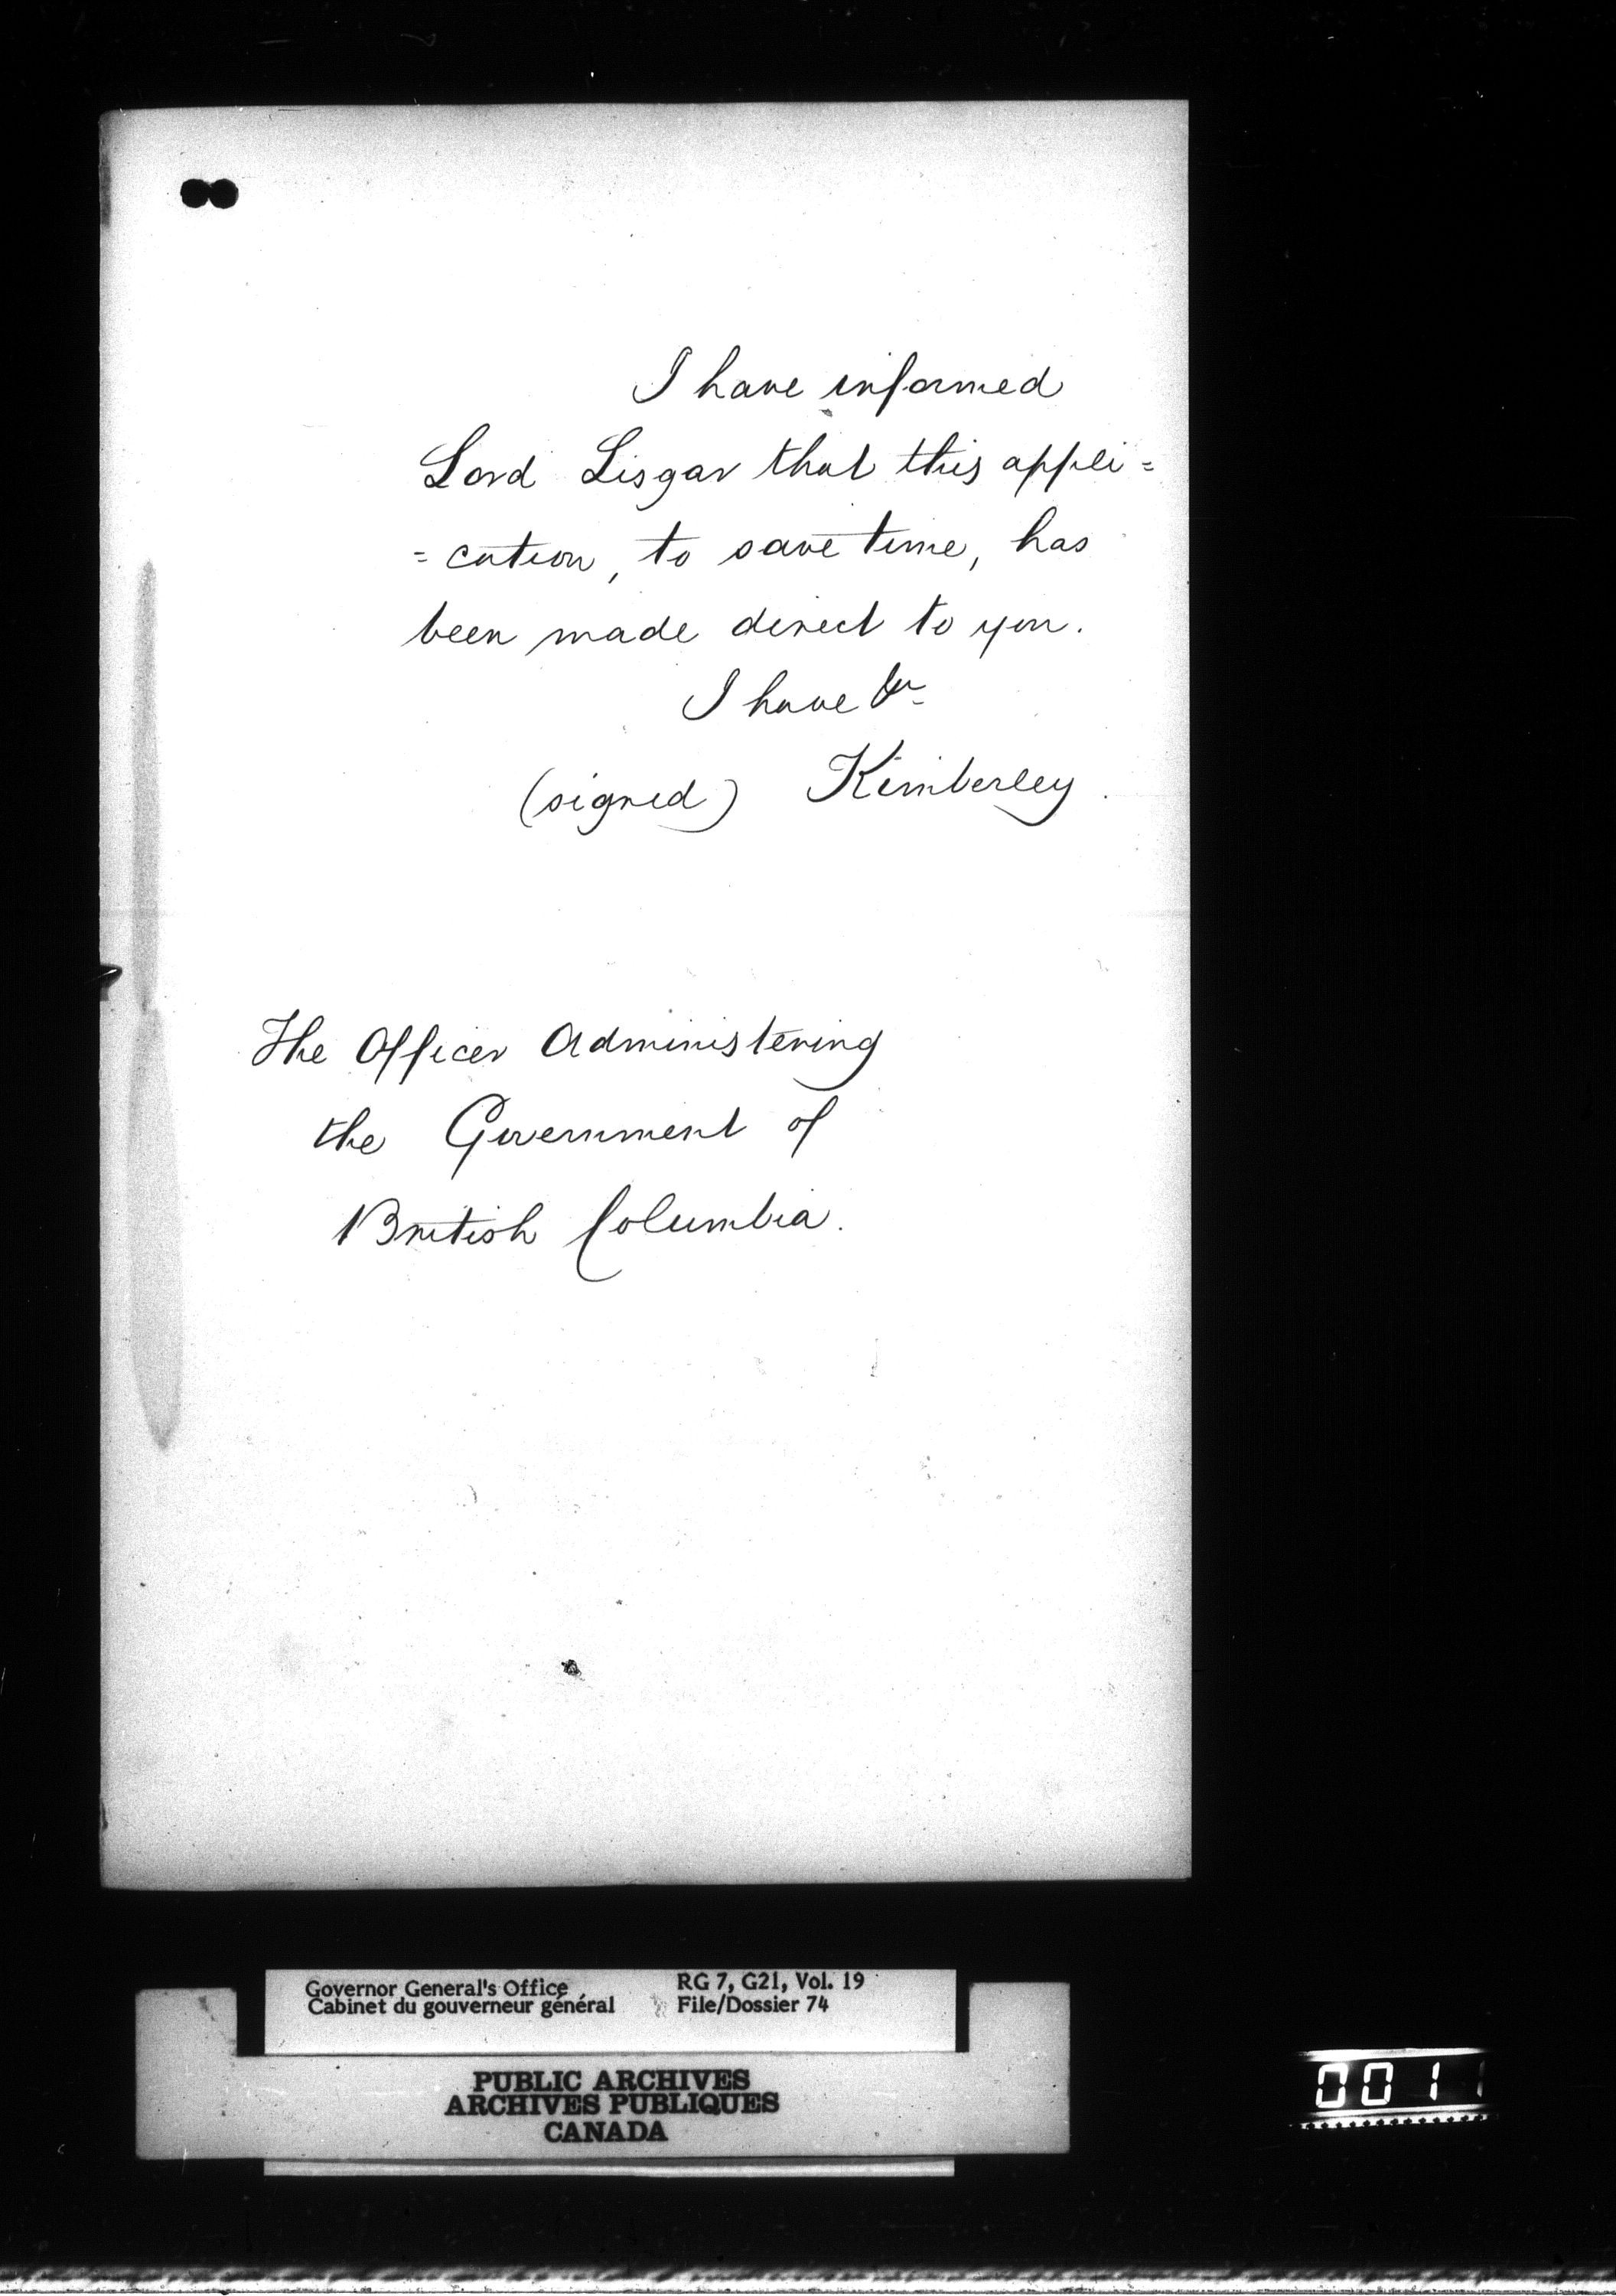 I have informed
Lord Lisgar that this appli=
=cation, to save time, has
been made direct to you.
I have &c
(signed) Kimberley.
The Officer Administering
the Government of
British Columbia.
Governor General's Office
Cabinet du gouverneur général
RG 7, G21, Vol. 19
File/Dossier 74
PUBLIC ARCHIVES
ARCHIVES PUBLIQUES
CANADA
0011